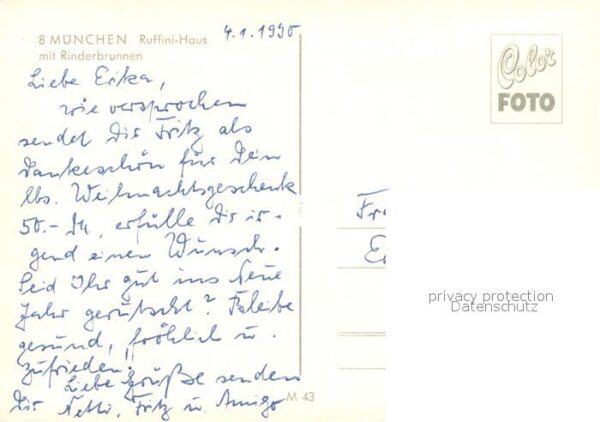 4.1.1990
8 MÜNCHEN Ruffini-Haus
mit Rinderbrunnen
Liebe Erika,
wie versprochen
sendet Dir Fritz als
Dankeschön für Dein
lbs. Weihnachtsgeschenk
50.- DM, erfülle Dir ir-
gend einen Wunsch.
Seid Ihr gut ins Neue
Jahr gerutscht? Bleibe
gesund, fröhlich u.
zufrieden!!
Liebe Grüße senden
Dir Netti, Fritz u. Amigo
M 43
Color
FOTO
privacy protection
Datenschutz